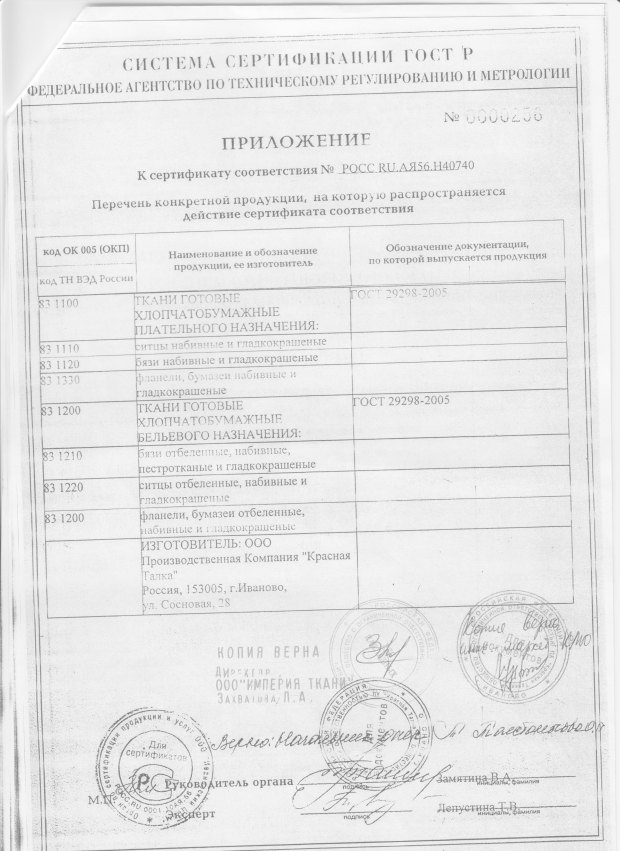 СИСТЕМА СЕРТИФИКАЦИИ ГОСТ Р
ФЕДЕРАЛЬНОЕ АГЕНТСТВО ПО ТЕХНИЧЕСКОМУ РЕГУЛИРОВАНИЮ И МЕТРОЛОГИИ
№ 0000256
ПРИЛОЖЕНИЕ
К сертификату соответствия № РОСС RU.АЯ56.Н40740
Перечень конкретной продукции, на которую распространяется
действие сертификата соответствия
код ОК 005 (ОКП)
код ТН ВЭД России
Наименование и обозначение
продукции, ее изготовитель
Обозначение документации,
по которой выпускается продукция
83 1100
ТКАНИ ГОТОВЫЕ
ХЛОПЧАТОБУМАЖНЫЕ
ПЛАТЕЛЬНОГО НАЗНАЧЕНИЯ:
ГОСТ 29298-2005
83 1110
ситцы набивные и гладкокрашеные
83 1120
бязи набивные и гладкокрашеные
83 1330
фланели, бумазеи набивные и
гладкокрашеные
83 1200
ТКАНИ ГОТОВЫЕ
ХЛОПЧАТОБУМАЖНЫЕ
БЕЛЬЕВОГО НАЗНАЧЕНИЯ:
ГОСТ 29298-2005
83 1210
бязи отбеленные, набивные,
пестротканые и гладкокрашеные
83 1220
ситцы отбеленные, набивные и
гладкокрашеные
83 1200
фланели, бумазеи отбеленные,
набивные и гладкокрашеные
ИЗГОТОВИТЕЛЬ: ООО
Производственная Компания "Красная
Талка"
Россия, 153005, г.Иваново,
ул. Сосновая, 28
КОПИЯ ВЕРНА
Директор
ООО"ИМПЕРИЯ ТКАНИ"
Захватова Л.А.
Копия верна
Верно:
Для
сертификатов
РОСС RU 0001
М.П.
Руководитель органа
подпись
Замятина В.А.
инициалы, фамилия
Эксперт
подпись
Лепустина Т.В.
инициалы, фамилия